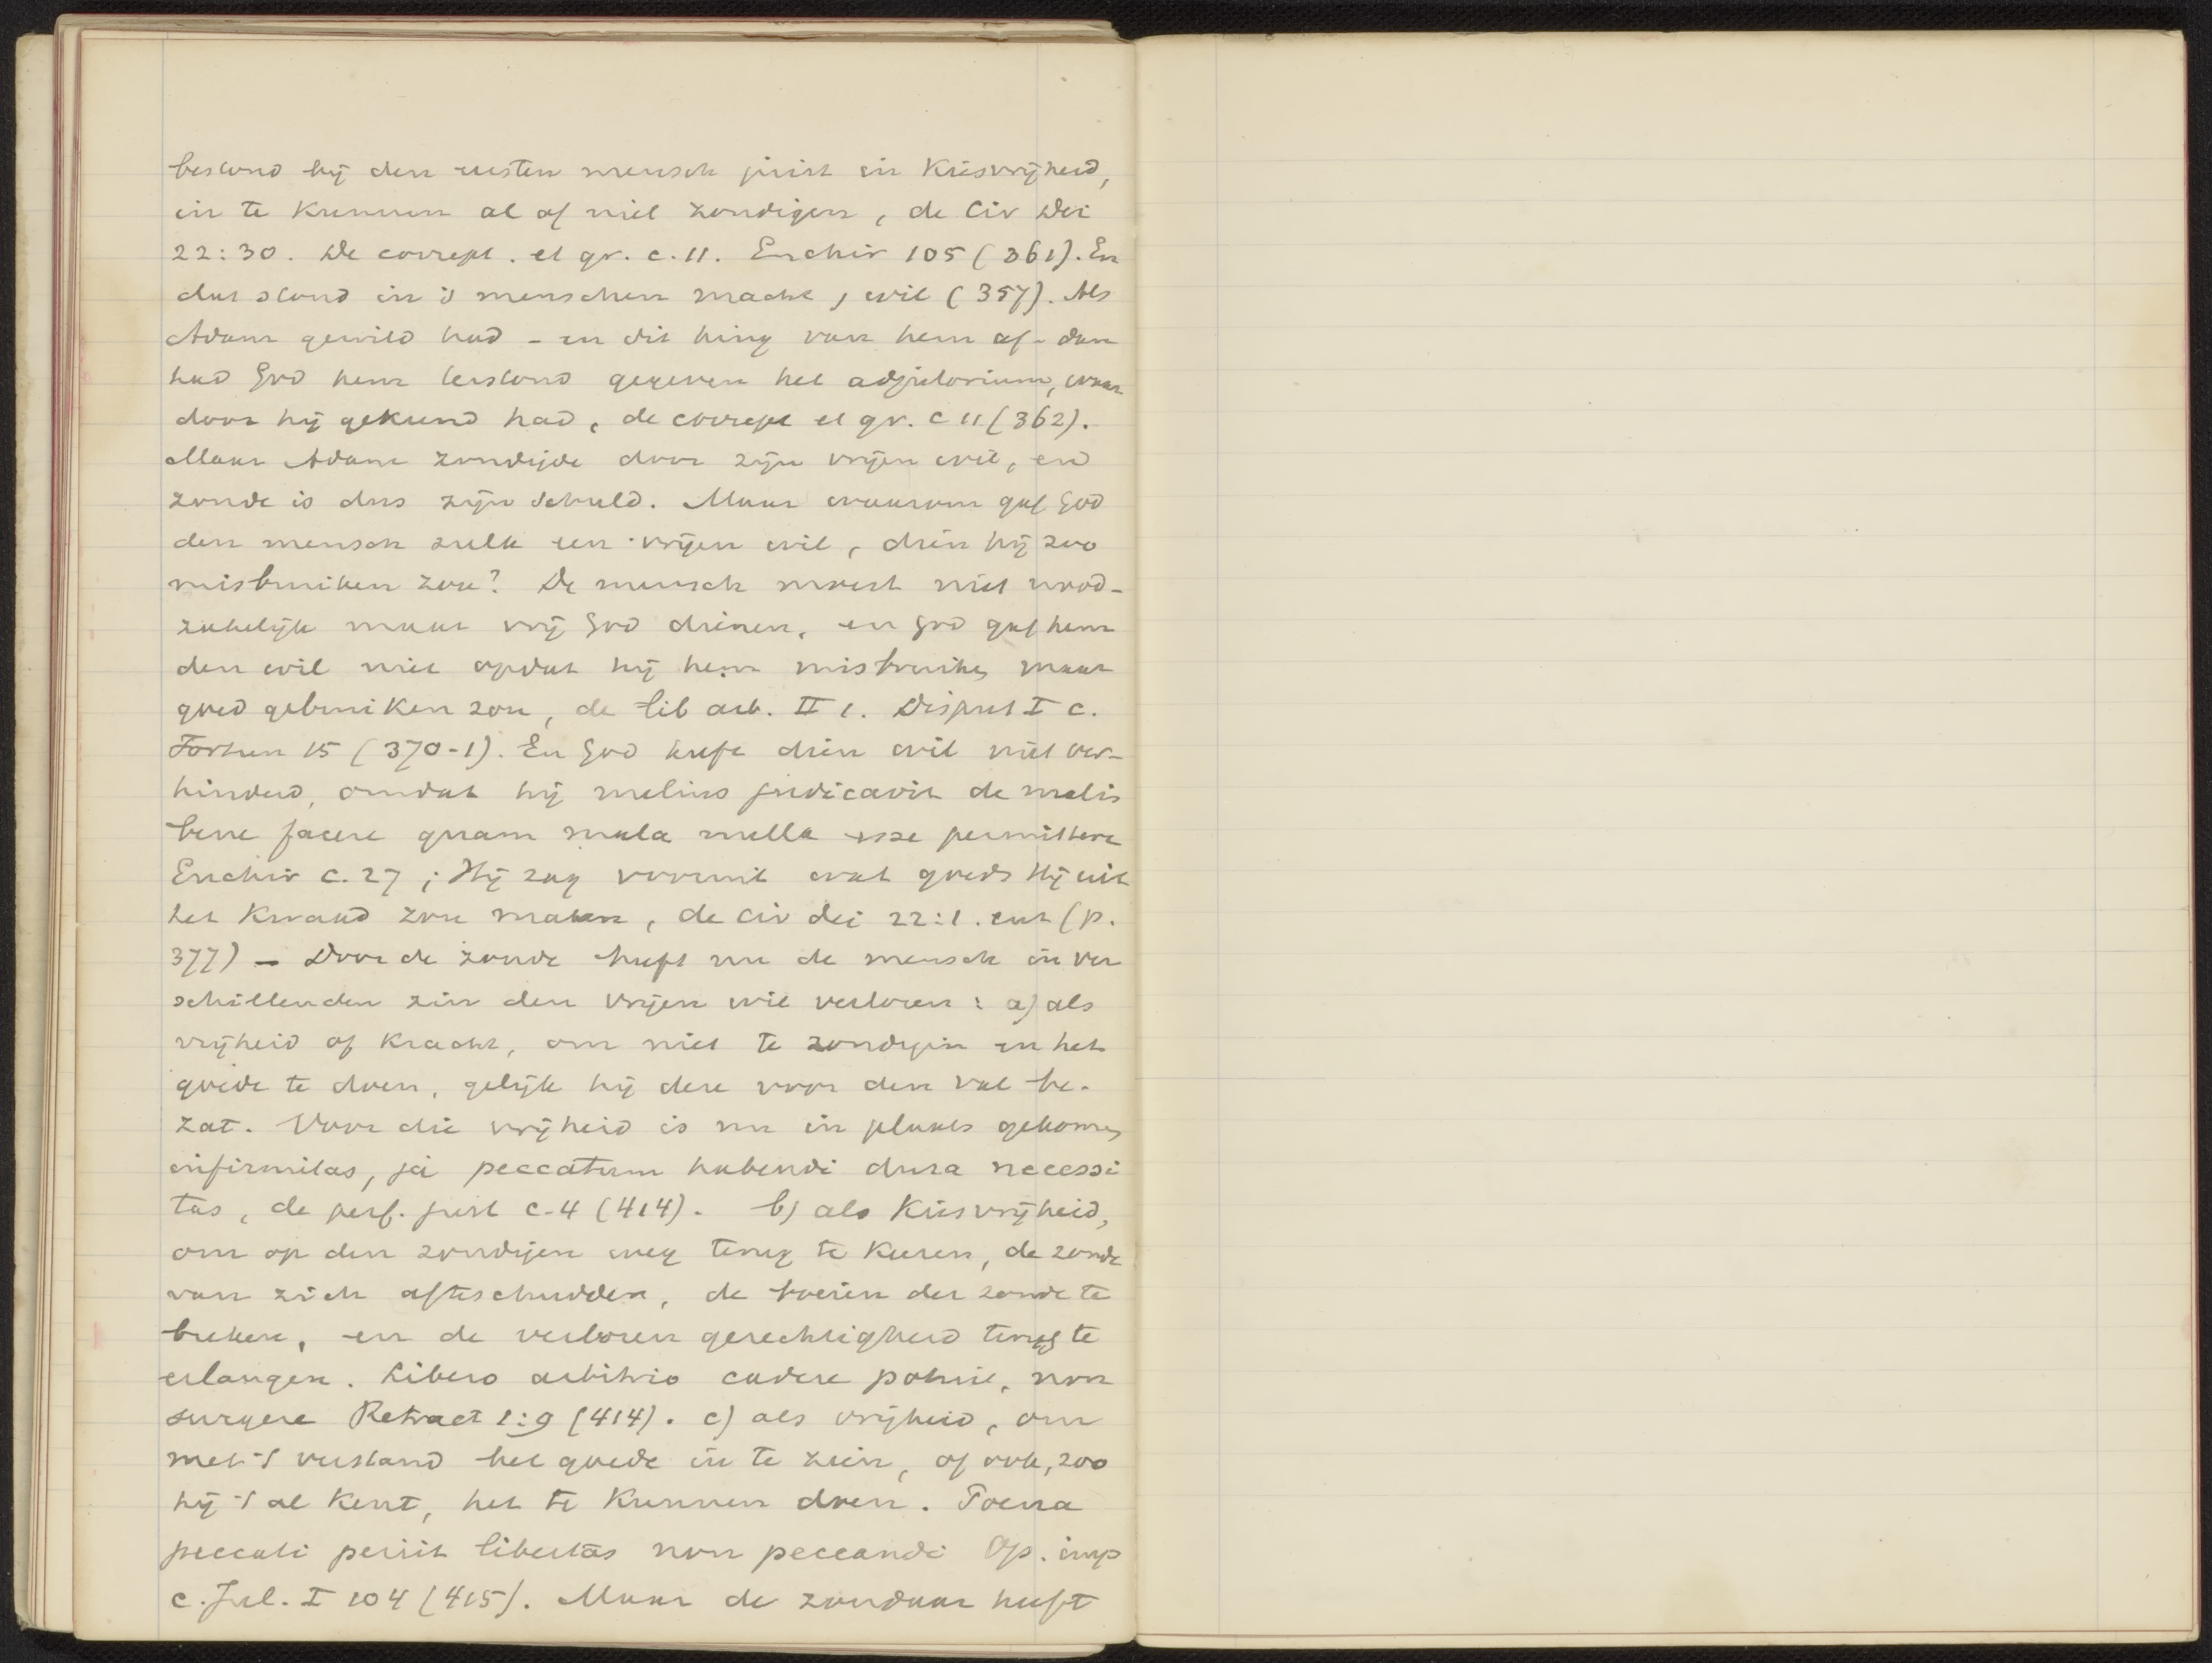 bestond bij den eersten mensch juist in Kiesvrijheid,
in te Kunnen al of niet zondigen, de Civ Dei
22:30. De corrept. et gr. c. 11. Enchir 105 (361). En
dat stond in 's menschen macht, wil (357). Als
Adam gewild had - en dit hing van hem af - dan
had God hem terstond gegeven het adjutorium, waar
door hij gekund had, de corrept et gr. c 11 (362).
Maar Adam zondigde door zijn vrijen wil, en
zonde is dus zijn schuld. Maar waarom gaf God
den mensch zulk een vrijen wil, dien hij zoo
misbruiken zou? De mensch moest niet nood-
zakelijk maar vrij God dienen, en God gaf hem
den wil niet opdat hij hem misbruiken maar
goed gebruiken zou, de lib arb. II 1. Disput I c.
Fortun 15 (370-1). En God heeft dien wil niet ver-
hinderd, omdat hij melius judicavit de malis
bene facere quam mala nulla esse permittere
Enchir c. 27; Hij zag vooruit wat goeds Hij uit
het Kwaad zou maken, de civ dei 22:1. enz (p.
377) - Door de zonde heeft nu de mensch in ver
schillenden zin den vrijen wil verloren: a) als
vrijheid of Kracht, om niet te zondigen en het
goede te doen, gelijk hij deze voor den val be-
zat. Voor die vrijheid is nu in plaats gekomen
infirmitas, ja peccatum habendi dura necessi
tas, de perf. just c. 4 (414). b) als Kiesvrijheid,
om op den zondigen weg terug te Keeren, de zonde
van zich afteschudden, de boeien der zonde te
breken, en de verloren gerechtigheid terug te
erlangen. Libero arbitrio cadere potuit, non
surgere Retract 1:9 (414). c) als vrijheid, om
met 't verstand het goede in te zien, of ook, zoo
hij 't al Kent, het te Kunnen doen. Poena
peccati periit libertas non peccandi Op. imp
c. Jul. I 104 (415). Maar de zondaar heeft